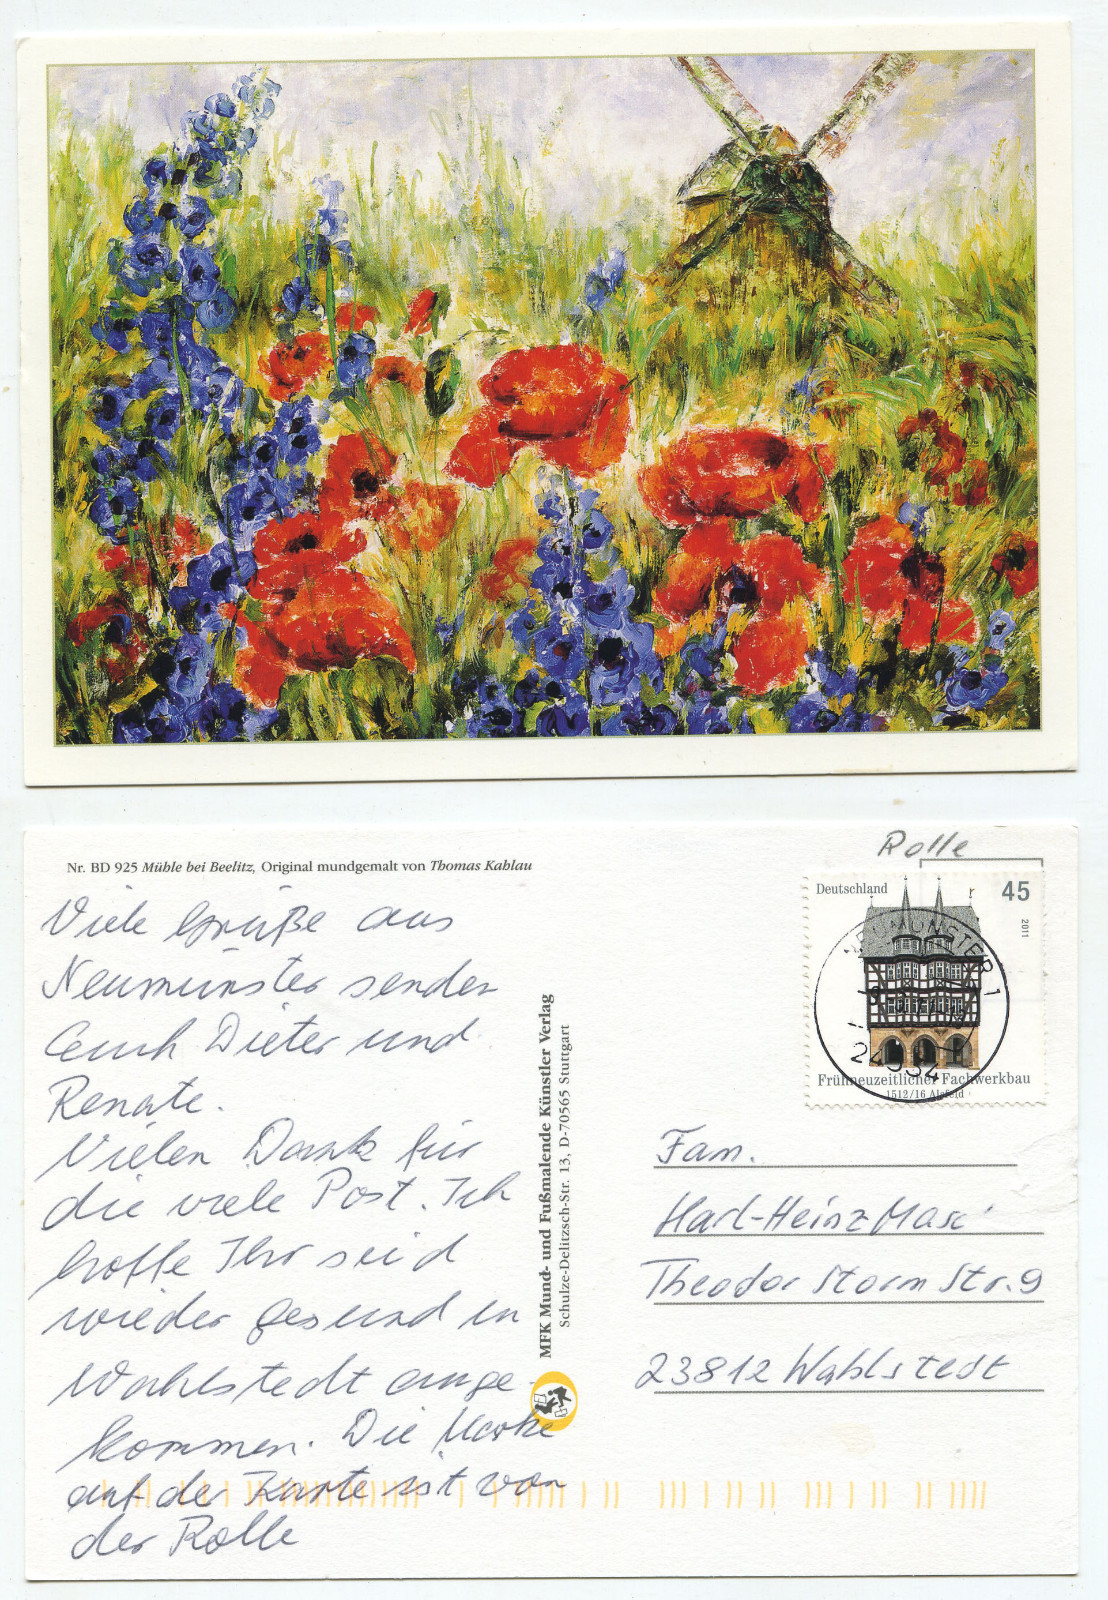 Nr. BD 925 Mühle bei Beelitz, Original mundgemalt von Thomas Kahlau
Viele Grüße aus
Neumünster senden
Euch Dieter und
Renate.
Vielen Dank für
die viele Post. Ich
hoffe Ihr seid
wieder gesund in
Wahlstedt ange-
kommen. Die Marke
auf der Karte ist von
der Rolle
MFK Mund- und Fußmalende Künstler Verlag
Schulze-Delitzsch-Str. 13, D-70565 Stuttgart
Rolle
Deutschland 45
2011
NEUMÜNSTER 1
24534
Frühneuzeitlicher Fachwerkbau
1512/16 Alsfeld
Fam.
Karl-Heinz
Theodor Storm Str. 9
23812 Wahlstedt